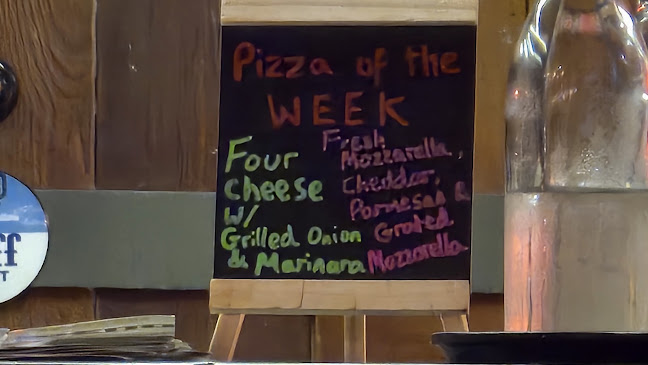 Pizza of the
WEEK
Four
cheese
w/
Grilled Onion
& Marinara
Fresh
Mozzarella,
Cheddar,
Parmesan &
Grated
Mozzarella
ff
T